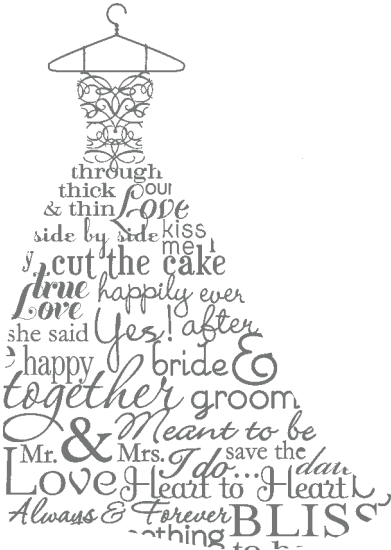 through
thick our
& thin Love
side by side kiss
me
cut the cake
true happily ever
Love
she said Yes! after
happy bride &
together groom
Meant to be
Mr. & Mrs. save the
I do...
Love Heart to Heart
Always & Forever BLISS
to be